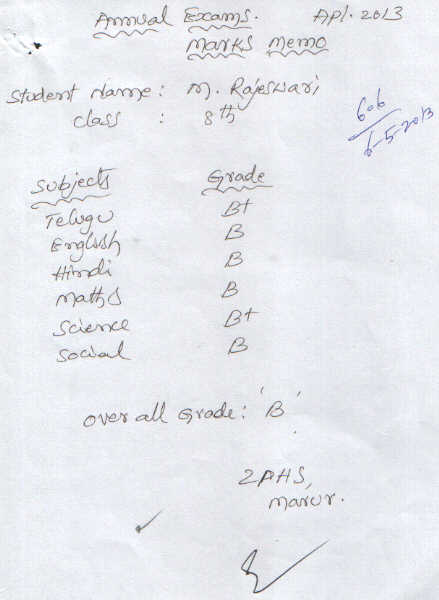 Annual Exams. Apl. 2013
Marks Memo
Student Name: M. Rajeswari
Class : 8th
606
6-5-2013
Subjects Grade
Telugu B+
English B
Hindi B
Maths B
Science B+
Social B
Over all Grade: 'B'
ZPHS,
Marur.